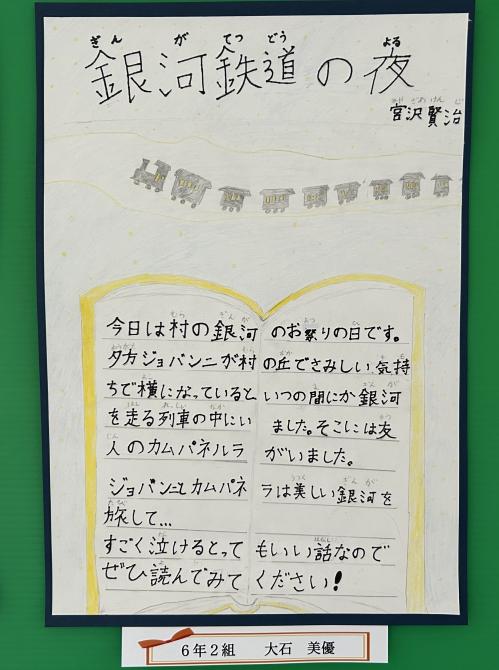 銀河鉄道の夜
宮沢賢治
今日は村の銀河のお祭りの日です。
夕方ジョバンニが村の丘でさみしい気持
ちで横になっているといつの間にか銀河
を走る列車の中にいました。そこには友
人のカムパネルラがいました。
ジョバンニとカムパネラは美しい銀河を
旅して…
すごく泣けるとってもいい話なので
ぜひ読んでみてください!
6年2組 大石 美優